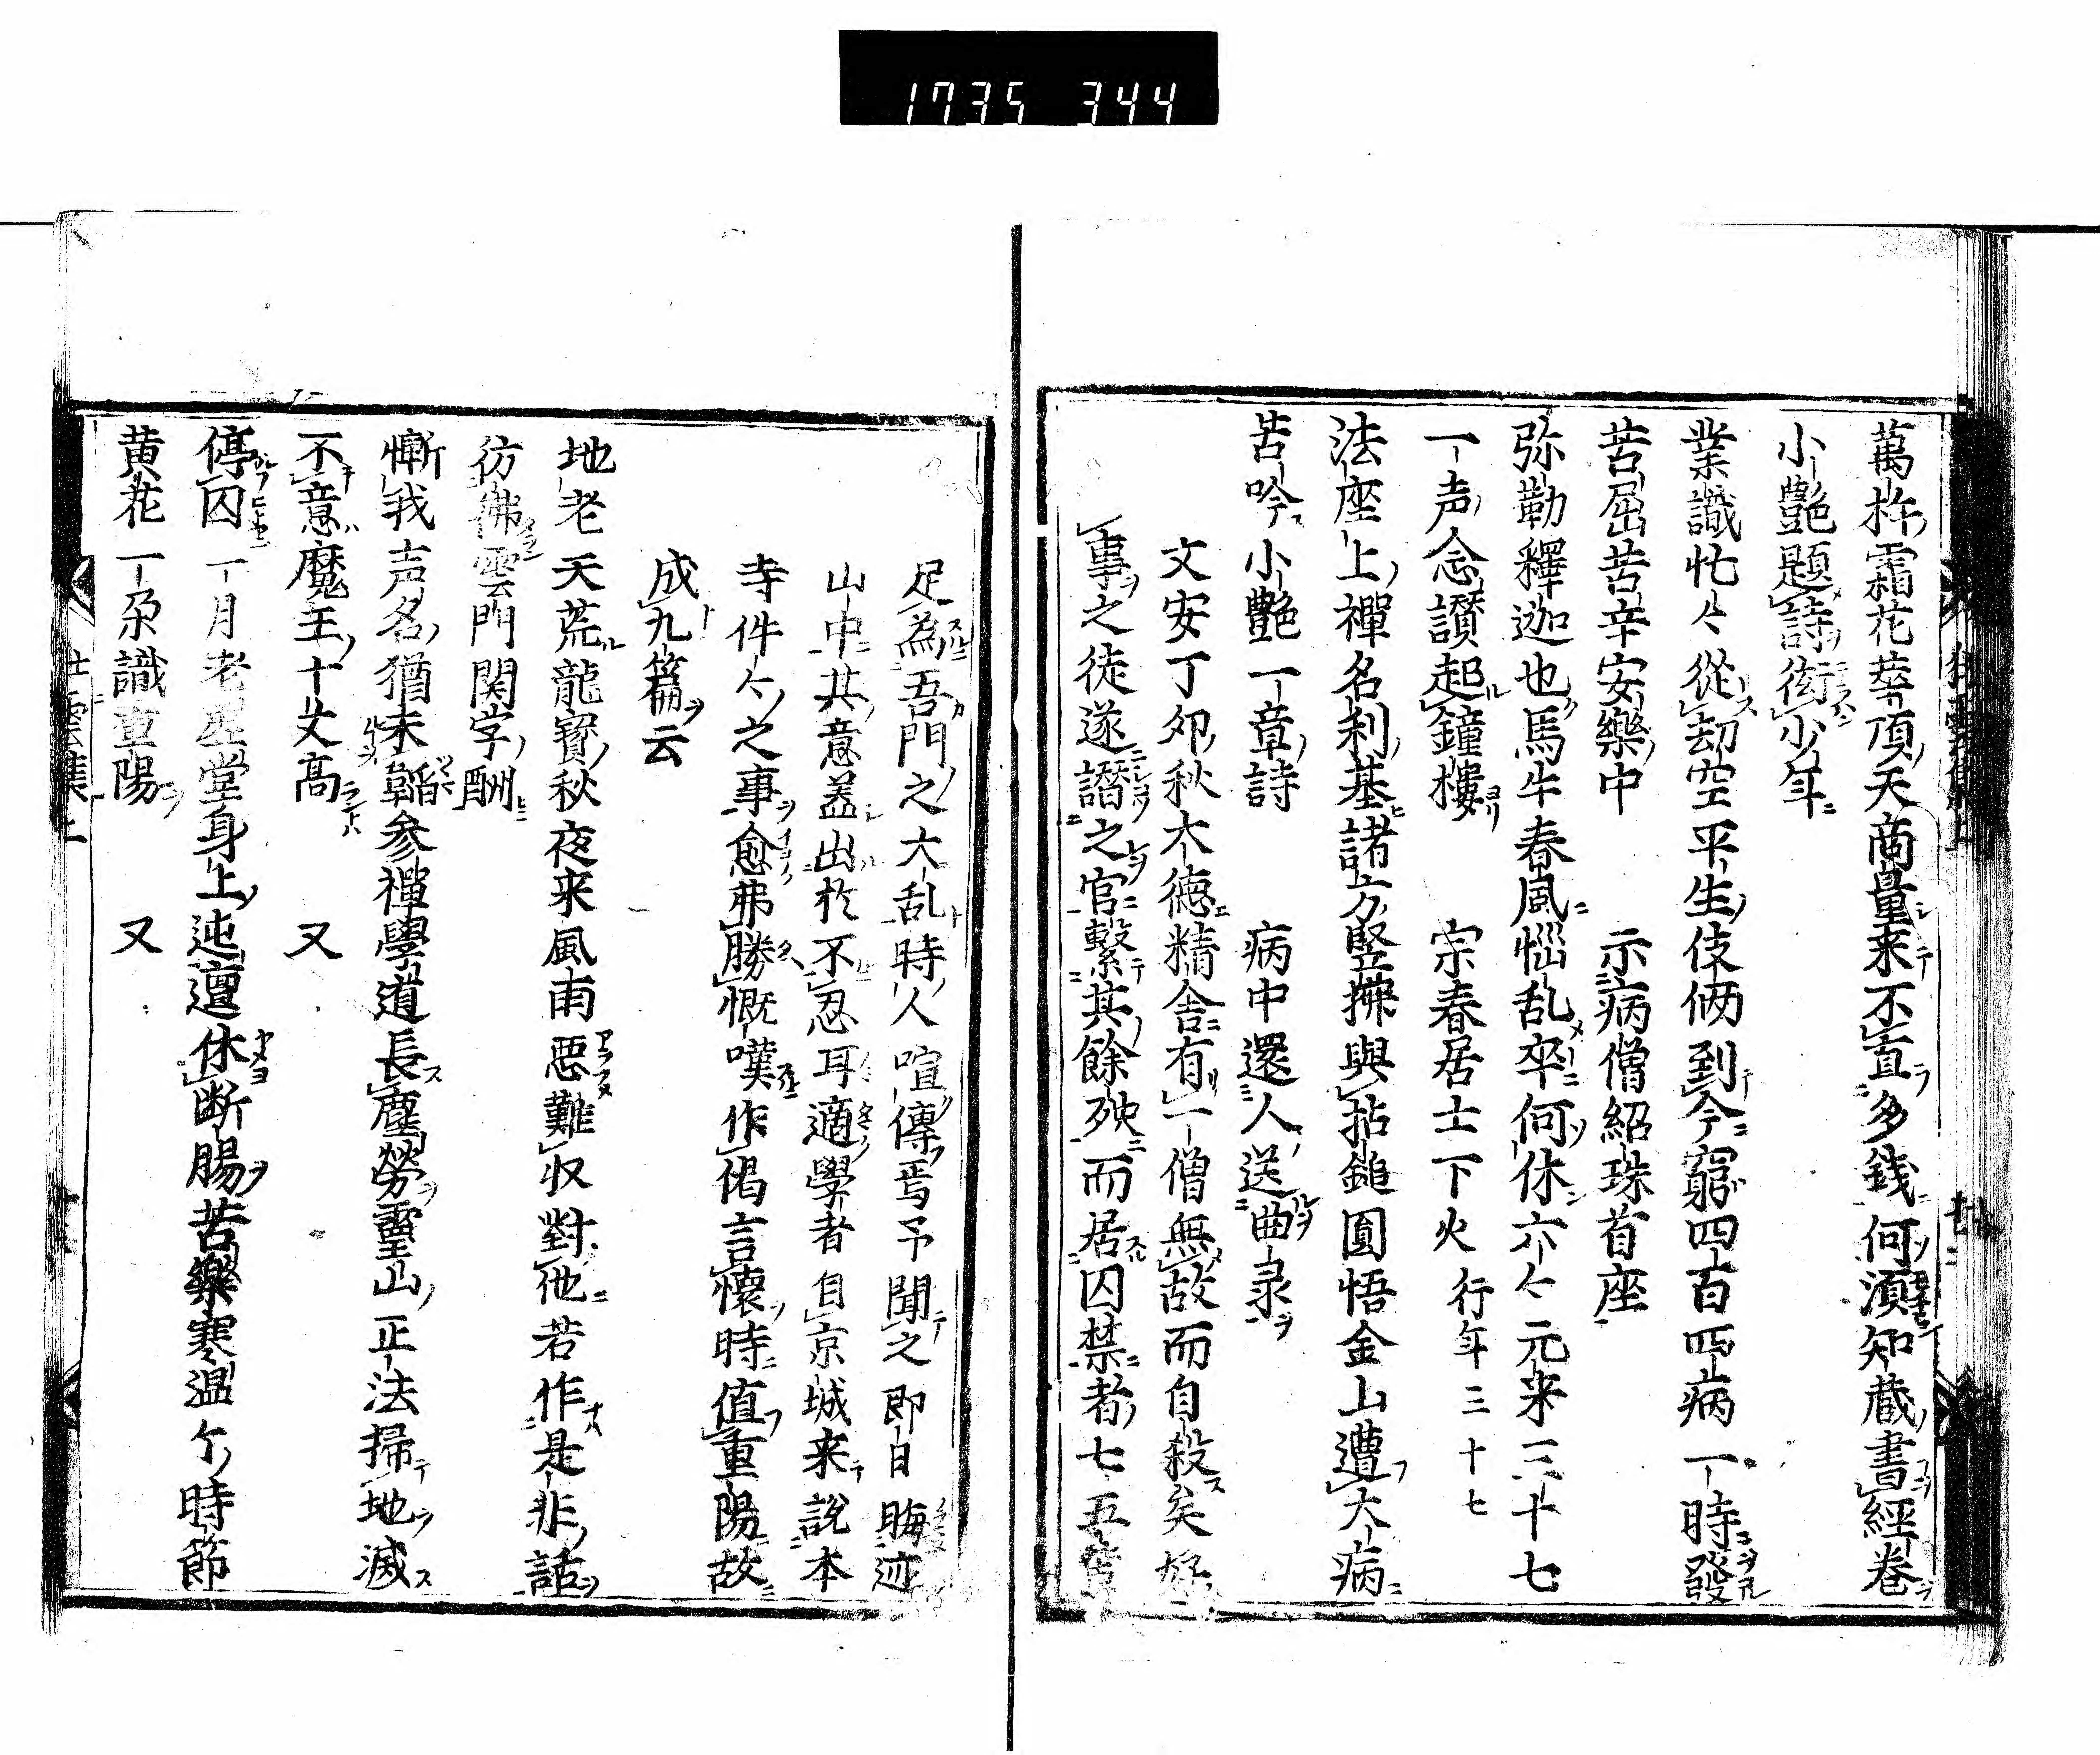 1735 344
萬杵霜花華頂天商量来不直多錢何湏知蔵書經卷
小艶題詩衒少年
業識忙々從刧空平生伎倆到今窮四百四病一時發
苦屈苦辛安樂中　示病僧紹珠首座
弥勒釋迦也馬牛春風惱乱卒何休六々元来三十七
一声念讃起鐘樓　宗春居士下火　行年三十七
法座上禪名利基諸方竪拂與拈鎚圓悟金山遭大病
苦吟小艶一章詩　病中還人送曲录
文安丁夘秋大德精舎有一僧無故而自殺矣好
事之徒遂譖之官繋其餘殃而居囚禁者七五
足為吾門之大乱時人喧傳焉予聞之即日晦迹
山中其意盖出於不忍耳適學者自京城来説本
寺件々之事愈弗勝慨嘆作偈言懷時値重陽故
成九篇云
地老天荒龍寳秋夜来風雨悪難収對他若作是非話
彷彿雲門関字酬
慚我声名猶未韜参禪學道長塵勞霊山正法掃地滅
不意魔王十丈髙　又
停囚一月老虚堂身上迍邅休断腸苦樂寒温个時節
黄花一朶識重陽　又
狂雲集上